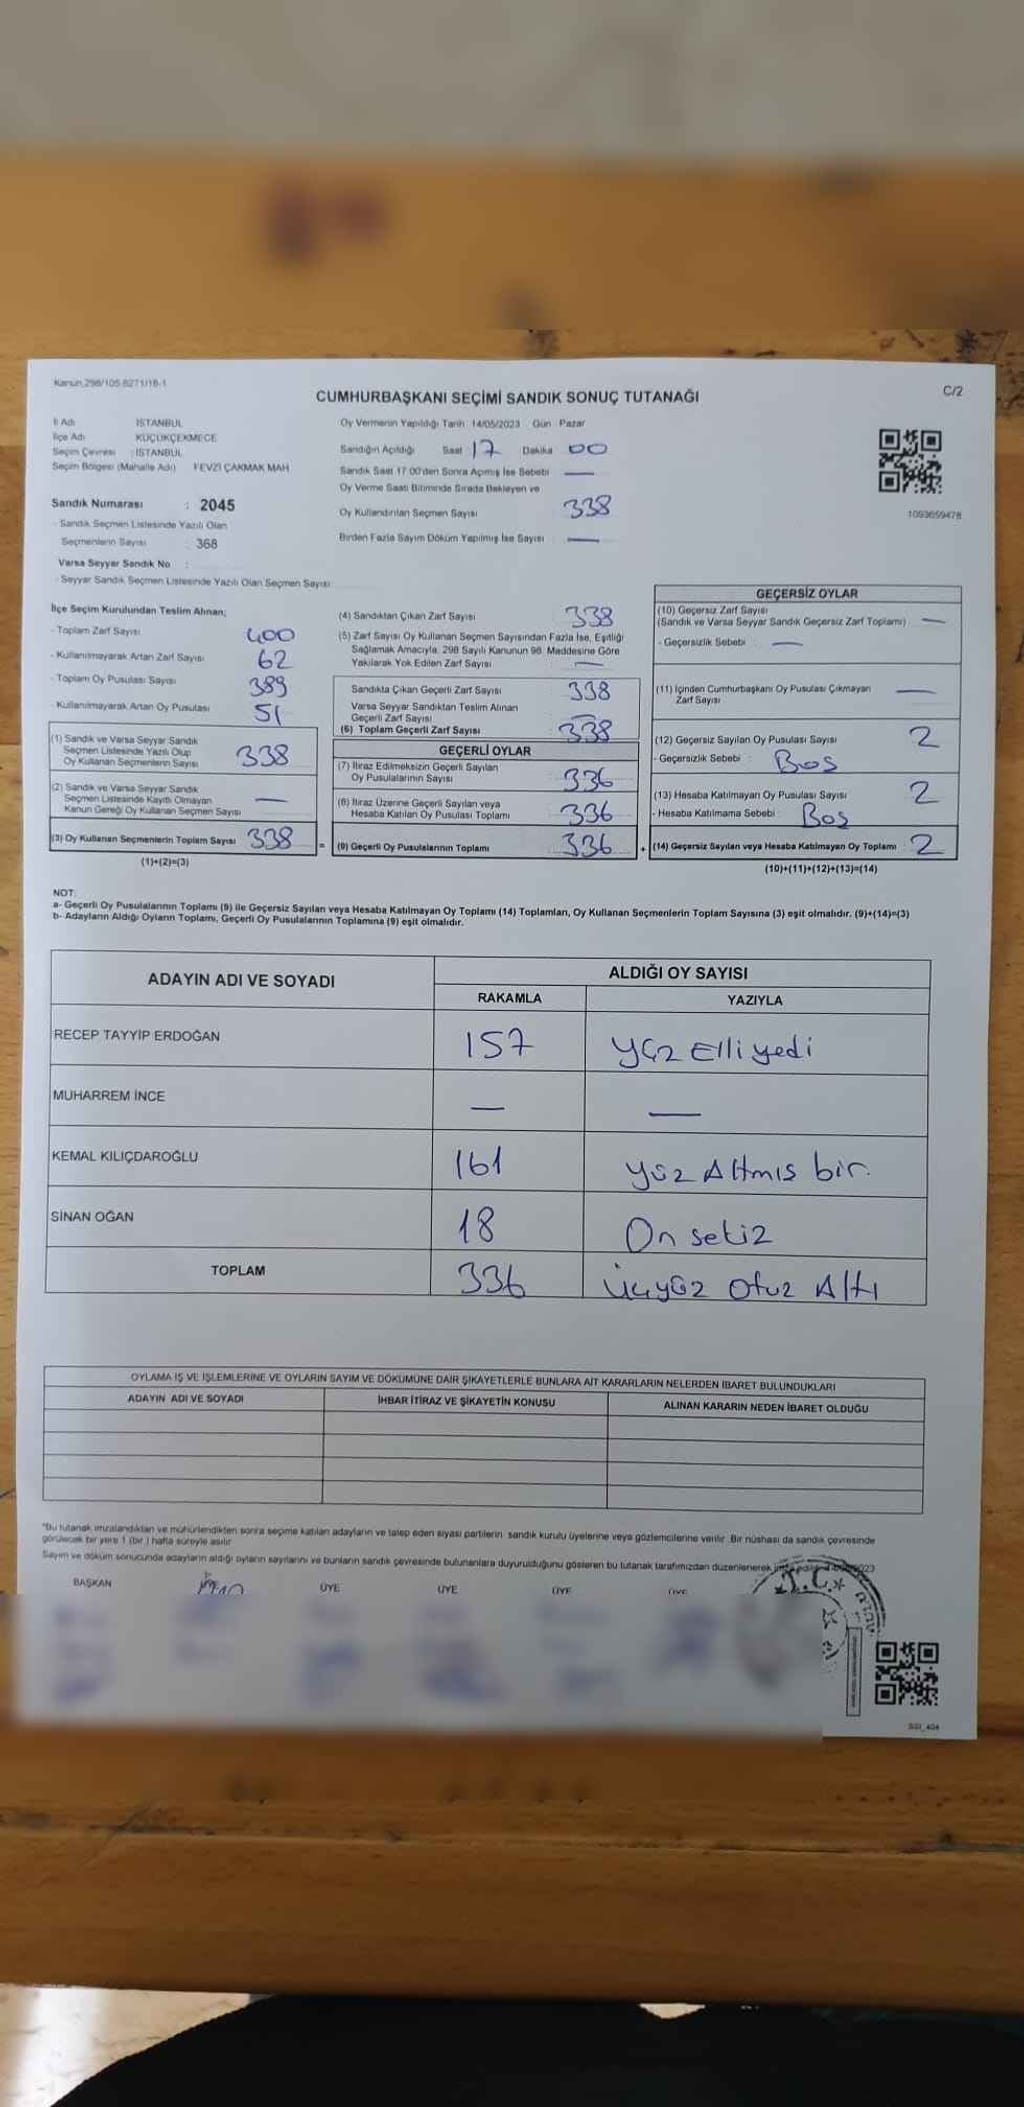 Kanun,298/105 6271/18-1
CUMHURBAŞKANI SEÇİMİ SANDIK SONUÇ TUTANAĞI
C/2
İl Adı : İSTANBUL
İlçe Adı : KÜÇÜKÇEKMECE
Seçim Çevresi : İSTANBUL
Seçim Bölgesi (Mahalle Adı) FEVZİ ÇAKMAK MAH
Sandık Numarası : 2045
- Sandık Seçmen Listesinde Yazılı Olan
Seçmenlerin Sayısı : 368
Varsa Seyyar Sandık No :
- Seyyar Sandık Seçmen Listesinde Yazılı Olan Seçmen Sayısı
Oy Vermenin Yapıldığı Tarih 14/05/2023 Gün : Pazar
Sandığın Açıldığı Saat 17 Dakika 00
Sandık Saat 17 00'den Sonra Açılmış İse Sebebi —
Oy Verme Saati Bitiminde Sırada Bekleyen ve
Oy Kullandırılan Seçmen Sayısı 338
Birden Fazla Sayım Döküm Yapılmış İse Sayısı —
1093659478
İlçe Seçim Kurulundan Teslim Alınan;
- Toplam Zarf Sayısı 400
- Kullanılmayarak Artan Zarf Sayısı 62
- Toplam Oy Pusulası Sayısı 389
- Kullanılmayarak Artan Oy Pusulası 51
(1) Sandık ve Varsa Seyyar Sandık
Seçmen Listesinde Yazılı Olup
Oy Kullanan Seçmenlerin Sayısı 338
(2) Sandık ve Varsa Seyyar Sandık
Seçmen Listesinde Kayıtlı Olmayan
Kanun Gereği Oy Kullanan Seçmen Sayısı —
(3) Oy Kullanan Seçmenlerin Toplam Sayısı 338
(1)+(2)=(3)
(4) Sandıktan Çıkan Zarf Sayısı 338
(5) Zarf Sayısı Oy Kullanan Seçmen Sayısından Fazla İse, Eşitliği
Sağlamak Amacıyla, 298 Sayılı Kanunun 98. Maddesine Göre
Yakılarak Yok Edilen Zarf Sayısı —
Sandıkta Çıkan Geçerli Zarf Sayısı 338
Varsa Seyyar Sandıktan Teslim Alınan
Geçerli Zarf Sayısı —
(6) Toplam Geçerli Zarf Sayısı 338
GEÇERLİ OYLAR
(7) İtiraz Edilmeksizin Geçerli Sayılan
Oy Pusulalarının Sayısı 336
(8) İtiraz Üzerine Geçerli Sayılan veya
Hesaba Katılan Oy Pusulası Toplamı 336
= (9) Geçerli Oy Pusulalarının Toplamı 336 +
GEÇERSİZ OYLAR
(10) Geçersiz Zarf Sayısı
(Sandık ve Varsa Seyyar Sandık Geçersiz Zarf Toplamı) —
- Geçersizlik Sebebi : —
(11) İçinden Cumhurbaşkanı Oy Pusulası Çıkmayan
Zarf Sayısı —
(12) Geçersiz Sayılan Oy Pusulası Sayısı 2
- Geçersizlik Sebebi : Boş
(13) Hesaba Katılmayan Oy Pusulası Sayısı 2
- Hesaba Katılmama Sebebi : Boş
(14) Geçersiz Sayılan veya Hesaba Katılmayan Oy Toplamı 2
(10)+(11)+(12)+(13)=(14)
NOT:
a- Geçerli Oy Pusulalarının Toplamı (9) ile Geçersiz Sayılan veya Hesaba Katılmayan Oy Toplamı (14) Toplamları, Oy Kullanan Seçmenlerin Toplam Sayısına (3) eşit olmalıdır. (9)+(14)=(3)
b- Adayların Aldığı Oyların Toplamı, Geçerli Oy Pusulalarının Toplamına (9) eşit olmalıdır.
ADAYIN ADI VE SOYADI
ALDIĞI OY SAYISI
RAKAMLA YAZIYLA
RECEP TAYYİP ERDOĞAN 157 Yüz Elli yedi
MUHARREM İNCE — —
KEMAL KILIÇDAROĞLU 161 Yüz Altmış bir.
SİNAN OĞAN 18 On sekiz
TOPLAM 336 Üçyüz Otuz Altı
OYLAMA İŞ VE İŞLEMLERİNE VE OYLARIN SAYIM VE DÖKÜMÜNE DAİR ŞİKAYETLERLE BUNLARA AİT KARARLARIN NELERDEN İBARET BULUNDUKLARI
ADAYIN ADI VE SOYADI İHBAR İTİRAZ VE ŞİKAYETİN KONUSU ALINAN KARARIN NEDEN İBARET OLDUĞU
*Bu tutanak imzalandıktan ve mühürlendikten sonra seçime katılan adayların ve talep eden siyasi partilerin sandık kurulu üyelerine veya gözlemcilerine verilir. Bir nüshası da sandık çevresinde
görülecek bir yere 1 (bir ) hafta süreyle asılır
Sayım ve döküm sonucunda adayların aldığı oyların sayılarını ve bunların sandık çevresinde bulunanlara duyurulduğunu gösteren bu tutanak tarafımızdan düzenlenerek
BAŞKAN ÜYE ÜYE ÜYE ÜYE
T.C.